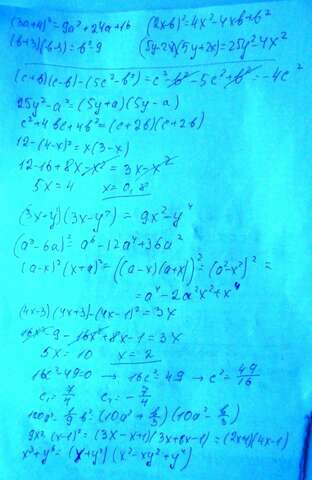 (3a+4)²=9a²+24a+16 (2x-b)²=4x²-4xb+b²
(b+3)(b-3)=b²-9 (5y-2x)(5y+2x)=25y²-4x²
(c+b)(c-b)-(5c²-b²)=c²-b²-5c²+b²=-4c²
25y²-a²=(5y+a)(5y-a)
c²+4bc+4b²=(c+2b)(c+2b)
12-(4-x)²=x(3-x)
12-16+8x-x²=3x-x²
5x=4 x=0,8
(3x+y²)(3x-y²)=9x²-y⁴
(a³-6a)²=a⁶-12a⁴+36a²
(a-x)²(x+a)²=((a-x)(a+x))²=(a²-x²)²=
=a⁴-2a²x²+x⁴
(4x-3)(4x+3)-(4x-1)²=3x
16x²-9-16x²+8x-1=3x
5x=10 x=2
16c²-49=0 → 16c²=49 → c²=49/16
c₁=7/4 c₂=-7/4
b²=(10a²+b/3)(10a²-b/3)
9x²-(x-1)²=(3x-x+1)(3x+x-1)=(2x+1)(4x-1)
x³+y⁶=(x+y²)(x²-xy²+y⁴)